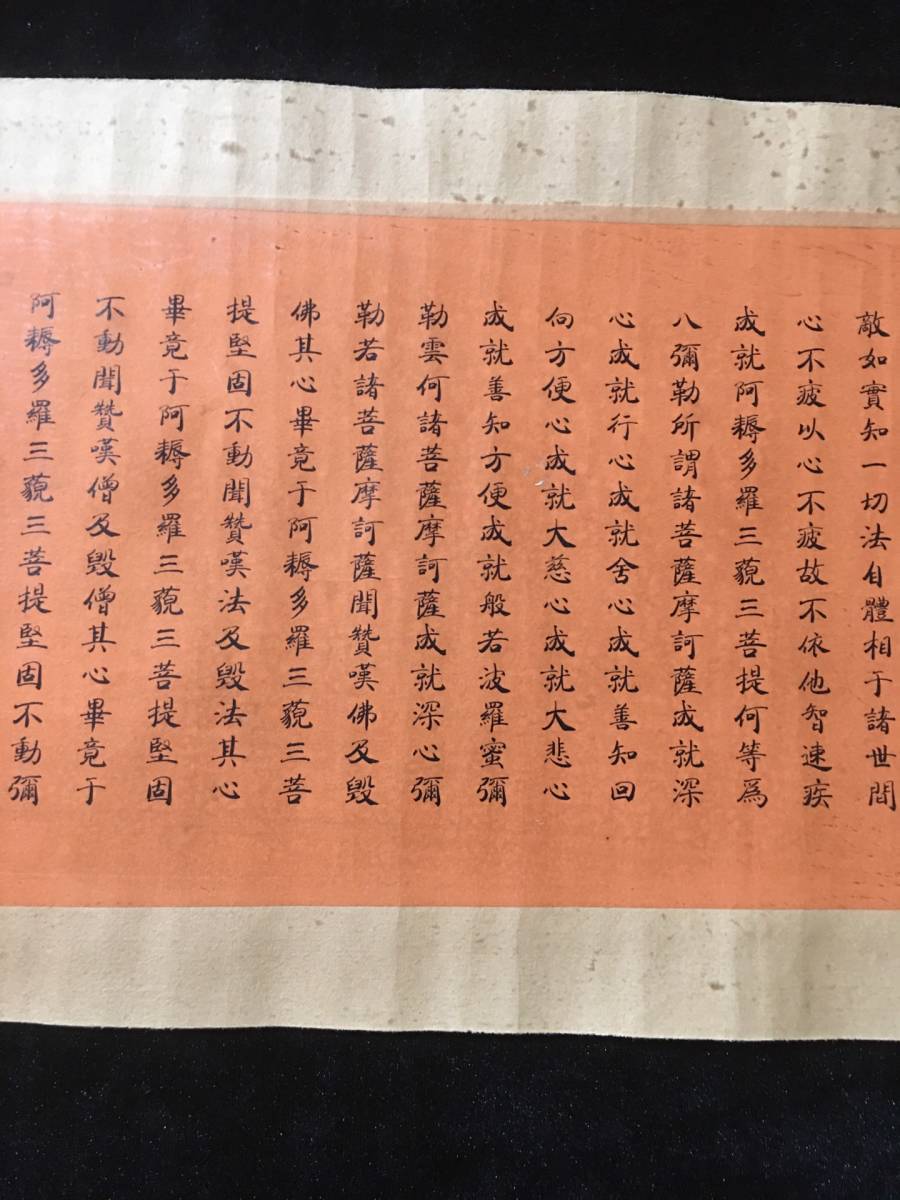 敵如實知一切法自體相于諸世間
心不疲以心不疲故不依他智速疾
成就阿耨多羅三藐三菩提何等爲
八彌勒所謂諸菩薩摩訶薩成就深
心成就行心成就舍心成就善知回
向方便心成就大慈心成就大悲心
成就善知方便成就般若波羅蜜彌
勒雲何諸菩薩摩訶薩成就深心彌
勒若諸菩薩摩訶薩聞贊嘆佛及毀
佛其心畢竟于阿耨多羅三藐三菩
提堅固不動聞贊嘆法及毀法其心
畢竟于阿耨多羅三藐三菩提堅固
不動聞贊嘆僧及毀僧其心畢竟于
阿耨多羅三藐三菩提堅固不動彌